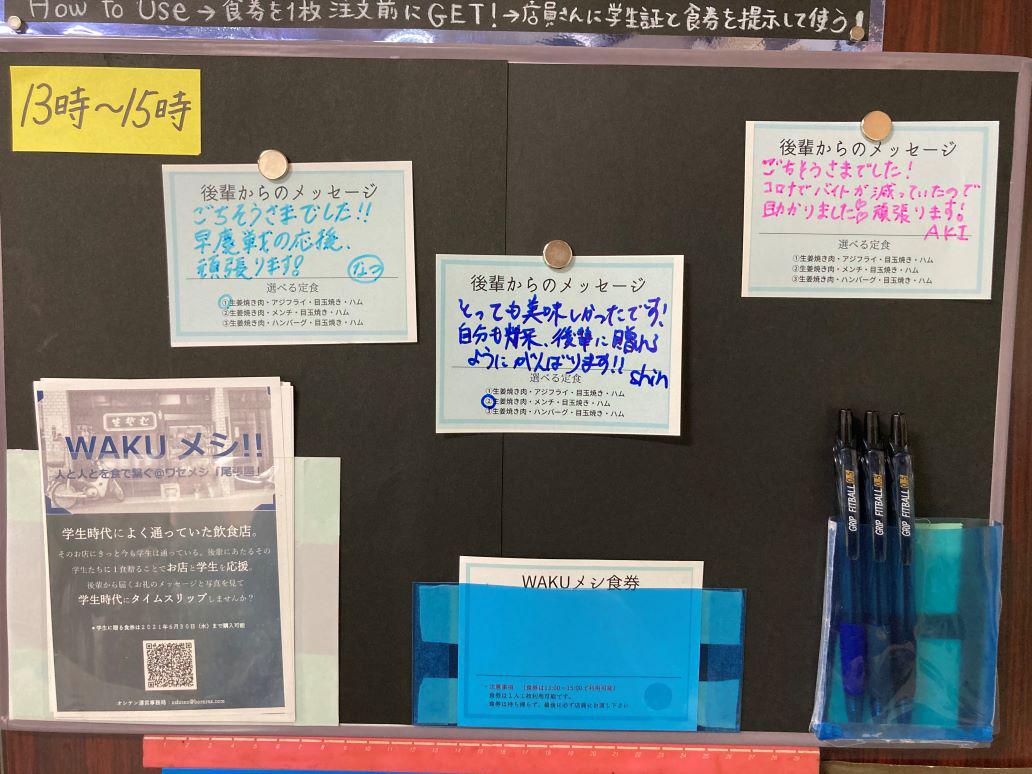 How to Use→食券を1枚注文前にGET!→店員さんに学生証と食券を提示して使う!
13時〜15時
後輩からのメッセージ
ごちそうさまでした!!
早慶戦の応援、
頑張ります!
なつ
選べる定食
①生姜焼き肉・アジフライ・目玉焼き・ハム
②生姜焼き肉・メンチ・目玉焼き・ハム
③生姜焼き肉・ハンバーグ・目玉焼き・ハム
後輩からのメッセージ
とっても美味しかったです!
自分も将来、後輩に贈れる
ようにがんばります!!
shin
選べる定食
①生姜焼き肉・アジフライ・目玉焼き・ハム
②生姜焼き肉・メンチ・目玉焼き・ハム
③生姜焼き肉・ハンバーグ・目玉焼き・ハム
後輩からのメッセージ
ごちそうさまでした!
コロナでバイトが減っていたので
助かりました 頑張ります!
AKI
選べる定食
①生姜焼き肉・アジフライ・目玉焼き・ハム
②生姜焼き肉・メンチ・目玉焼き・ハム
③生姜焼き肉・ハンバーグ・目玉焼き・ハム
WAKUメシ!!
人と人とを食で繋ぐ@ワセメシ「尾張屋」
学生時代によく通っていた飲食店。
そのお店にきっと今も学生は通っている。後輩にあたるその
学生たちに1食贈ることでお店と学生を応援。
後輩から届くお礼のメッセージと写真を見て
学生時代にタイムスリップしませんか?
*学生に贈る食券は2021年6月30日(水)まで購入可能
オシテン運営事務局:
WAKUメシ食券
・注意事項 【食券は13:00~15:00で利用可能】
食券は1人1枚利用可能です。
食券は持ち帰らず、最後に必ず店員にお渡し下さい
GRIP FITBALL
GRIP FITBALL
GRIP FITBALL